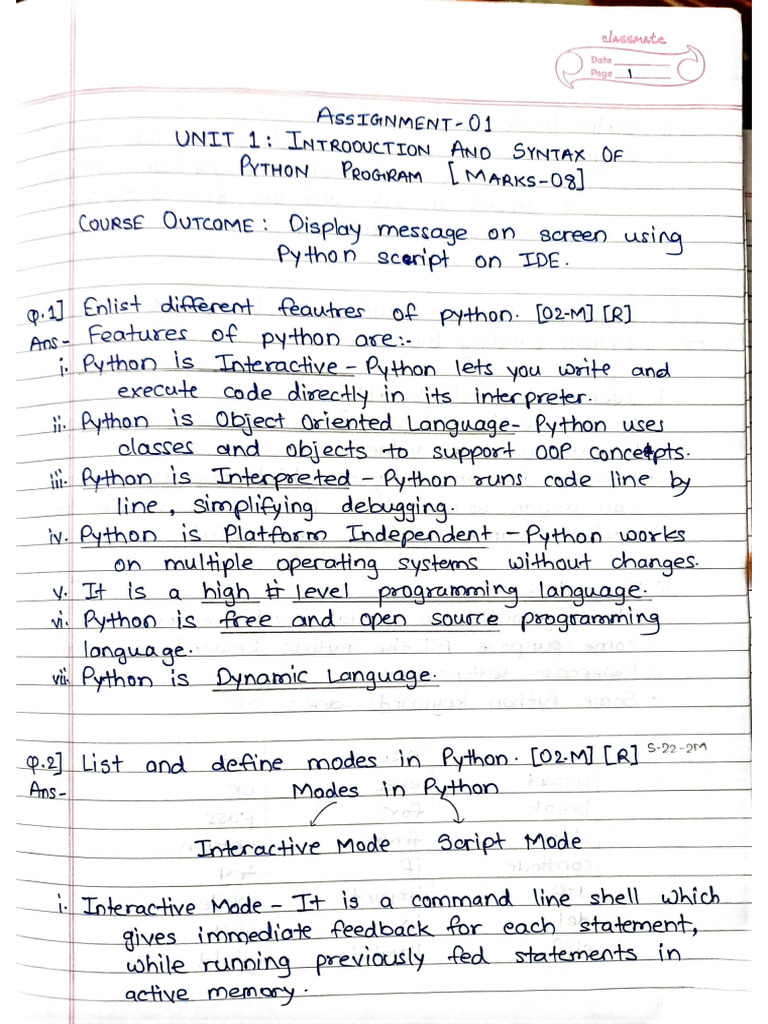 classmate
Date
Page 1
ASSIGNMENT-01
UNIT 1: INTRODUCTION AND SYNTAX OF
PYTHON PROGRAM [MARKS-08]
COURSE OUTCOME: Display message on screen using
Python script on IDE.
Q.1] Enlist different feautres of python. [02-M] [R]
Ans- Features of python are:-
i. Python is Interactive - Python lets you write and
execute code directly in its interpreter.
ii. Python is Object Oriented Language- Python uses
classes and objects to support OOP concepts.
iii. Python is Interpreted - Python runs code line by
line, simplifying debugging.
iv. Python is Platform Independent - Python works
on multiple operating systems without changes.
v. It is a high level programming language.
vi. Python is free and open source programming
language.
vii. Python is Dynamic Language.
Q.2] List and define modes in Python. [02-M] [R] S-22-2M
Ans- Modes in Python
Interactive Mode Script Mode
i. Interactive Mode - It is a command line shell which
gives immediate feedback for each statement,
while running previously fed statements in
active memory.